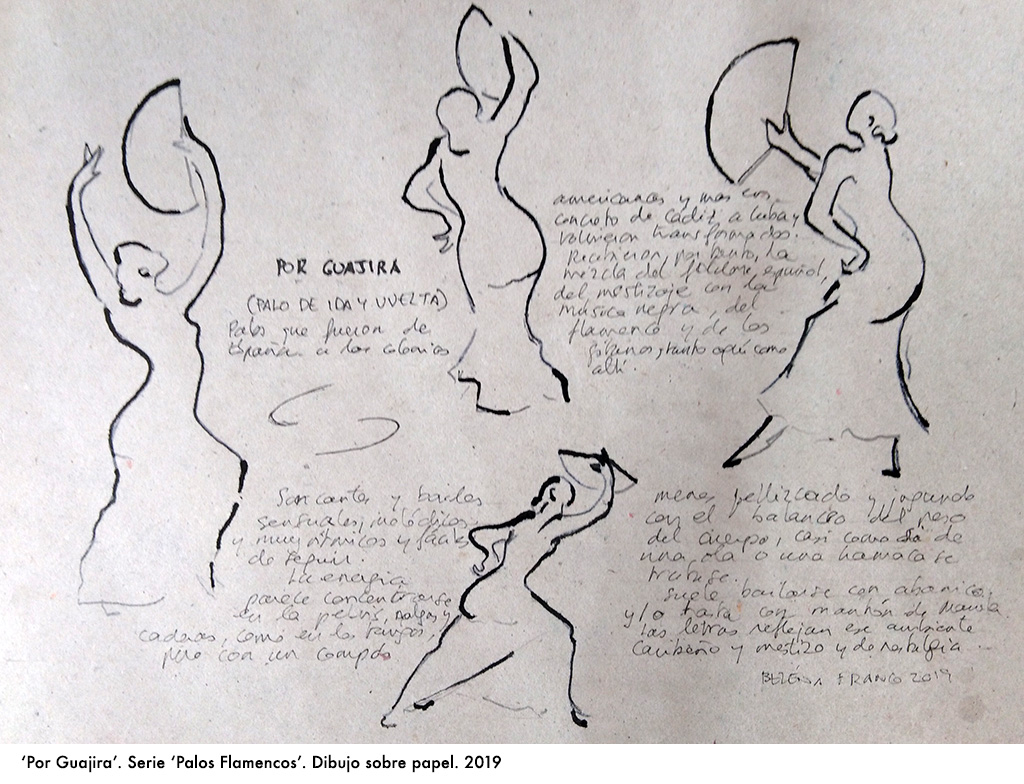 POR GUAJIRA
(PALO DE IDA Y VUELTA)
Palos que fueron de
España a las colonias
americanas y mas con
concreto de Cádiz a Cuba y
volvieron transformados.
Recibieron, por tanto, la
mezcla del folclore español,
del mestizaje con la
música negra, del
flamenco y de los
gitanos, tanto aquí como
allí.
Son cantes y bailes
sensuales, melódicos
y muy rítmicos y fáciles
de seguir.
La energía
parece concentrarse
en la pelvis, nalgas y
caderas, como en los tangos,
pero con un compás
menos pellizcado y jugando
con el balanceo del peso
del cuerpo, casi como de
una ola o una hamaca se
tratase.
Suele bailarse con abanico,
y/o bata con mantón de Manila
Las letras reflejan ese ambiente
caribeño y mestizo y de nostalgia
FRANCO 2019
‘Por Guajira’. Serie ‘Palos Flamencos’. Dibujo sobre papel. 2019